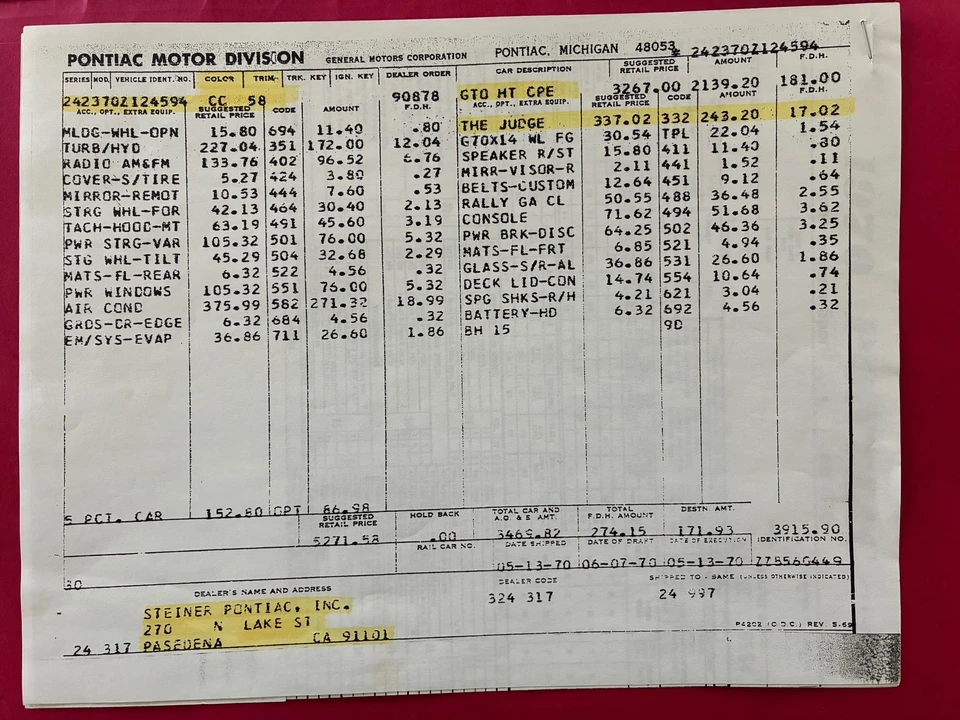 PONTIAC MOTOR DIVISION GENERAL MOTORS CORPORATION PONTIAC, MICHIGAN 48053 242370Z124594
SERIES MOD. VEHICLE IDENT. NO. COLOR TRIM TRK. KEY IGN. KEY DEALER ORDER CAR DESCRIPTION SUGGESTED RETAIL PRICE AMOUNT F.D.H.
242370Z124594 CC 58 90878 GTO HT CPE 3267.00 2139.20 181.00
ACC., OPT., EXTRA EQUIP. SUGGESTED RETAIL PRICE CODE AMOUNT F.D.H. ACC., OPT., EXTRA EQUIP. SUGGESTED RETAIL PRICE CODE AMOUNT F.D.H.
THE JUDGE 337.02 332 243.20 17.02
MLDG-WHL-OPN 15.80 694 11.40 .80 G70X14 WL FG 30.54 TPL 22.04 1.54
TURB/HYD 227.04 351 172.00 12.04 SPEAKER R/ST 15.80 411 11.40 .80
RADIO AM&FM 133.76 402 96.52 6.76 MIRR-VISOR-R 2.11 441 1.52 .11
COVER-S/TIRE 5.27 424 3.80 .27 BELTS-CUSTOM 12.64 451 9.12 .64
MIRROR-REMOT 10.53 444 7.60 .53 RALLY GA CL 50.55 488 36.48 2.55
STRG WHL-FOR 42.13 464 30.40 2.13 CONSOLE 71.62 494 51.68 3.62
TACH-HOOD-MT 63.19 491 45.60 3.19 PWR BRK-DISC 64.25 502 46.36 3.25
PWR STRG-VAR 105.32 501 76.00 5.32 MATS-FL-FRT 6.85 521 4.94 .35
STG WHL-TILT 45.29 504 32.68 2.29 GLASS-S/R-AL 36.86 531 26.60 1.86
MATS-FL-REAR 6.32 522 4.56 .32 DECK LID-CON 14.74 554 10.64 .74
PWR WINDOWS 105.32 551 76.00 5.32 SPG SHKS-R/H 4.21 621 3.04 .21
AIR COND 375.99 582 271.32 18.99 BATTERY-HD 6.32 692 4.56 .32
GRDS-DR-EDGE 6.32 684 4.56 .32 BH 15 9D
EM/SYS-EVAP 36.86 711 26.60 1.86
5 PCT. CAR 152.80 OPT 86.98
SUGGESTED RETAIL PRICE HOLD BACK TOTAL CAR AND A.O. & E. AMT. TOTAL F.D.H. AMOUNT DESTN. AMT.
5271.58 .00 3469.82 274.15 171.93 3915.90
RAIL CAR NO. DATE SHIPPED DATE OF DRAFT DATE OF EXECUTION IDENTIFICATION NO.
05-13-70 06-07-70 05-13-70 ZZ8560449
30
DEALER'S NAME AND ADDRESS DEALER CODE SHIPPED TO - SAME (UNLESS OTHERWISE INDICATED)
324 317 24 997
STEINER PONTIAC, INC.
270 N LAKE ST
24 317 PASEDENA CA 91101
P4202 (C.D.C.) REV. 5-69